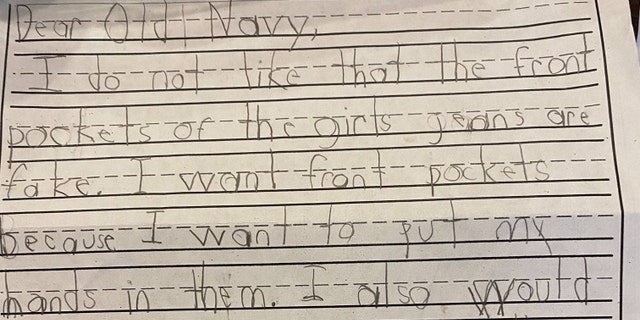 Dear Old Navy,
I do not like that the front
pockets of the girls jeans are
fake. I want front pockets
because I want to put my
hands in them. I also would